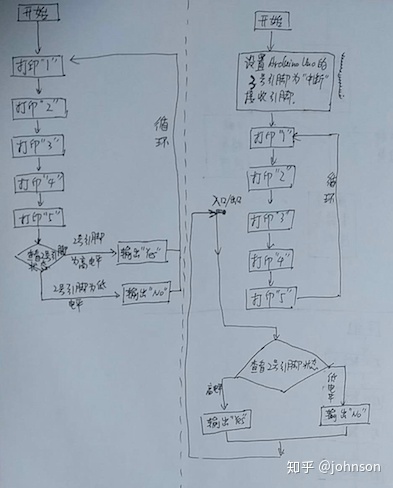 开始
打印"1"
打印"2"
打印"3"
打印"4"
打印"5"
查看2号引脚
状态
2号引脚
为高电平
输出"Yes"
2号引脚为低
电平
输出"No"
循环
开始
设置Arduino Uno的
2号引脚为"中断"
接收引脚.
打印"1"
打印"2"
打印"3"
打印"4"
打印"5"
循环
入口/出口
查看2号引脚状态
高电平
低电平
输出"Yes"
输出"No"
知乎 @johnson